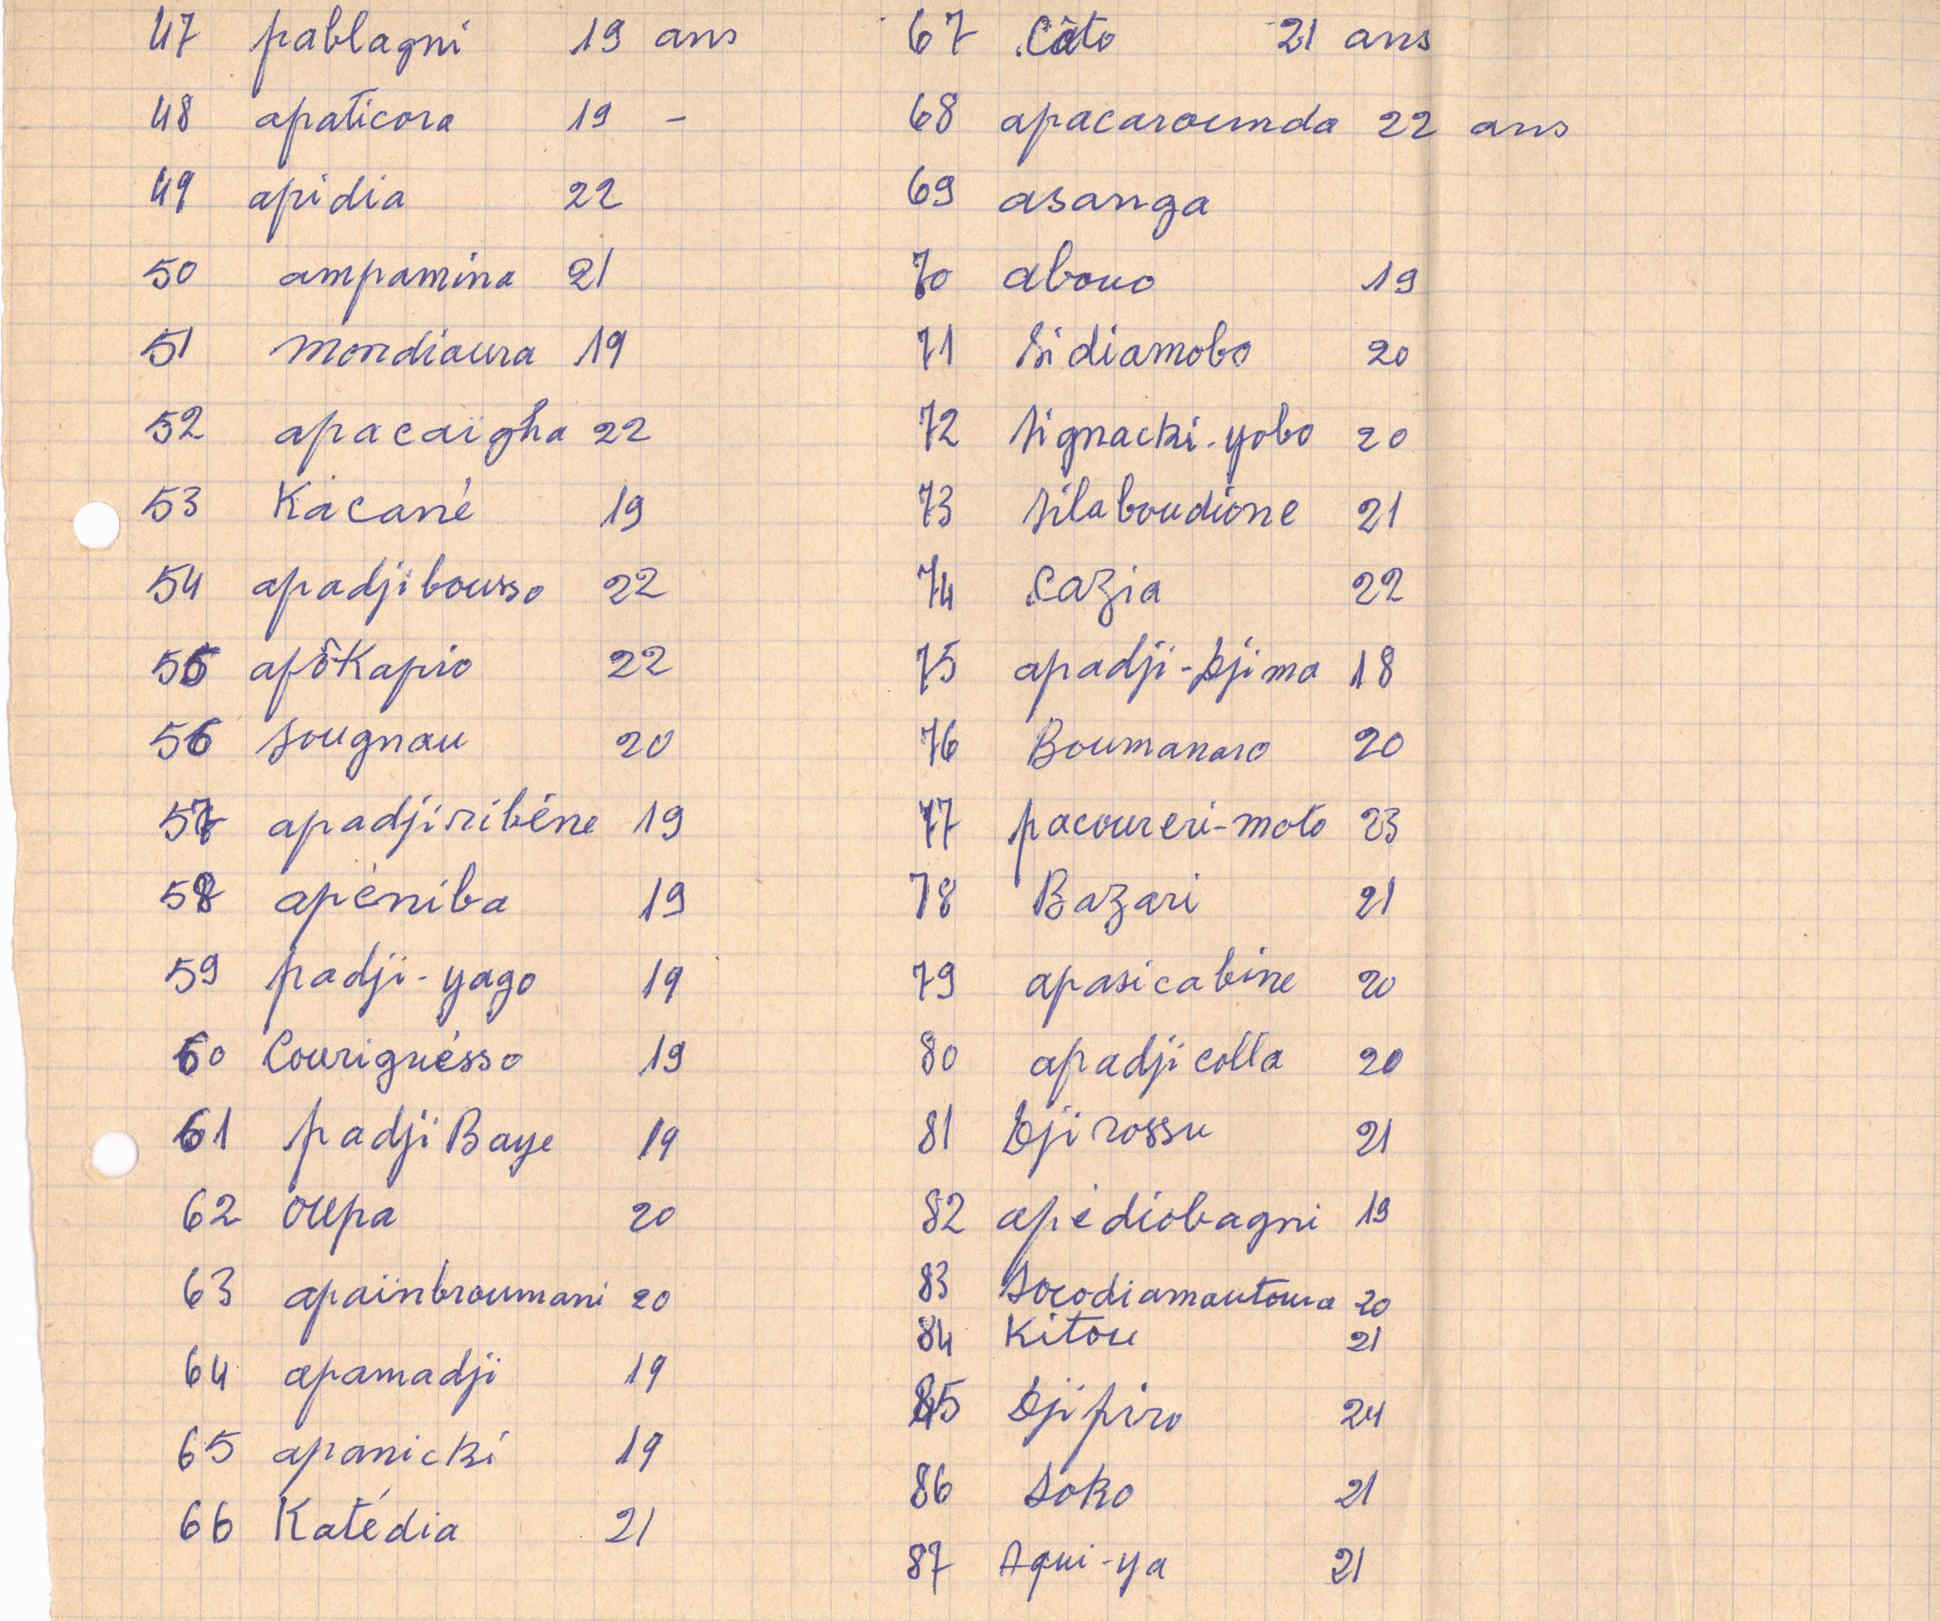 47 pablagni 19 ans
48 apaticora 19 -
49 apidia 22
50 ampamina 21
51 Mondiaura 19
52 apacaïgha 22
53 Kacané 19
54 apadjibousso 22
55 apôKapio 22
56 sougnau 20
57 apadjiribéne 19
58 apéniba 19
59 padji-yago 19
60 Couriguésso 19
61 padji Baye 19
62 oupa 20
63 apaïnbroumani 20
64 apamadji 19
65 apanicki 19
66 Katédia 21
67 Câto 21 ans
68 apacarounda 22 ans
69 asanga
70 abouo 19
71 sidiamobo 20
72 signacki-yobo 20
73 silaboudione 21
74 Cazia 22
75 apadji-Djima 18
76 Boumanaro 20
77 pacoureri-moto 23
78 Bazari 21
79 apasicabine 20
80 apadji colla 20
81 Djirossu 21
82 apédiobagni 19
83 socodiamautoura 20
84 Kitou 21
85 Djipiro 24
86 soko 21
87 Aqui-ya 21